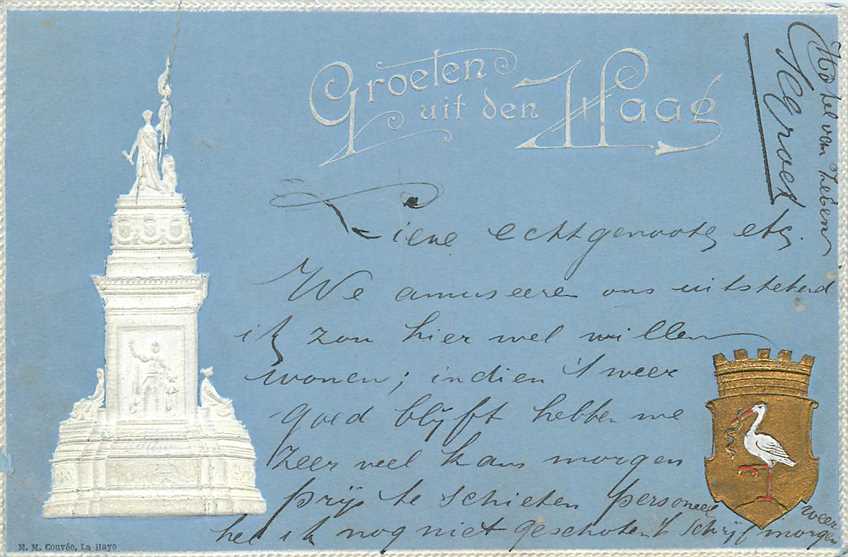 Groeten
uit den Haag
Hotel van Zeben
Lieve echtgenoote, etc.
We amuseeren ons uitstekend
ik zou hier wel willen
wonen; indien 't weer
goed blijft hebben we
zeer veel kans morgen
prijs te schieten personeel
heb ik nog niet geschoten. k schrijf morgen
weer
M. M. Couvée, La Haye